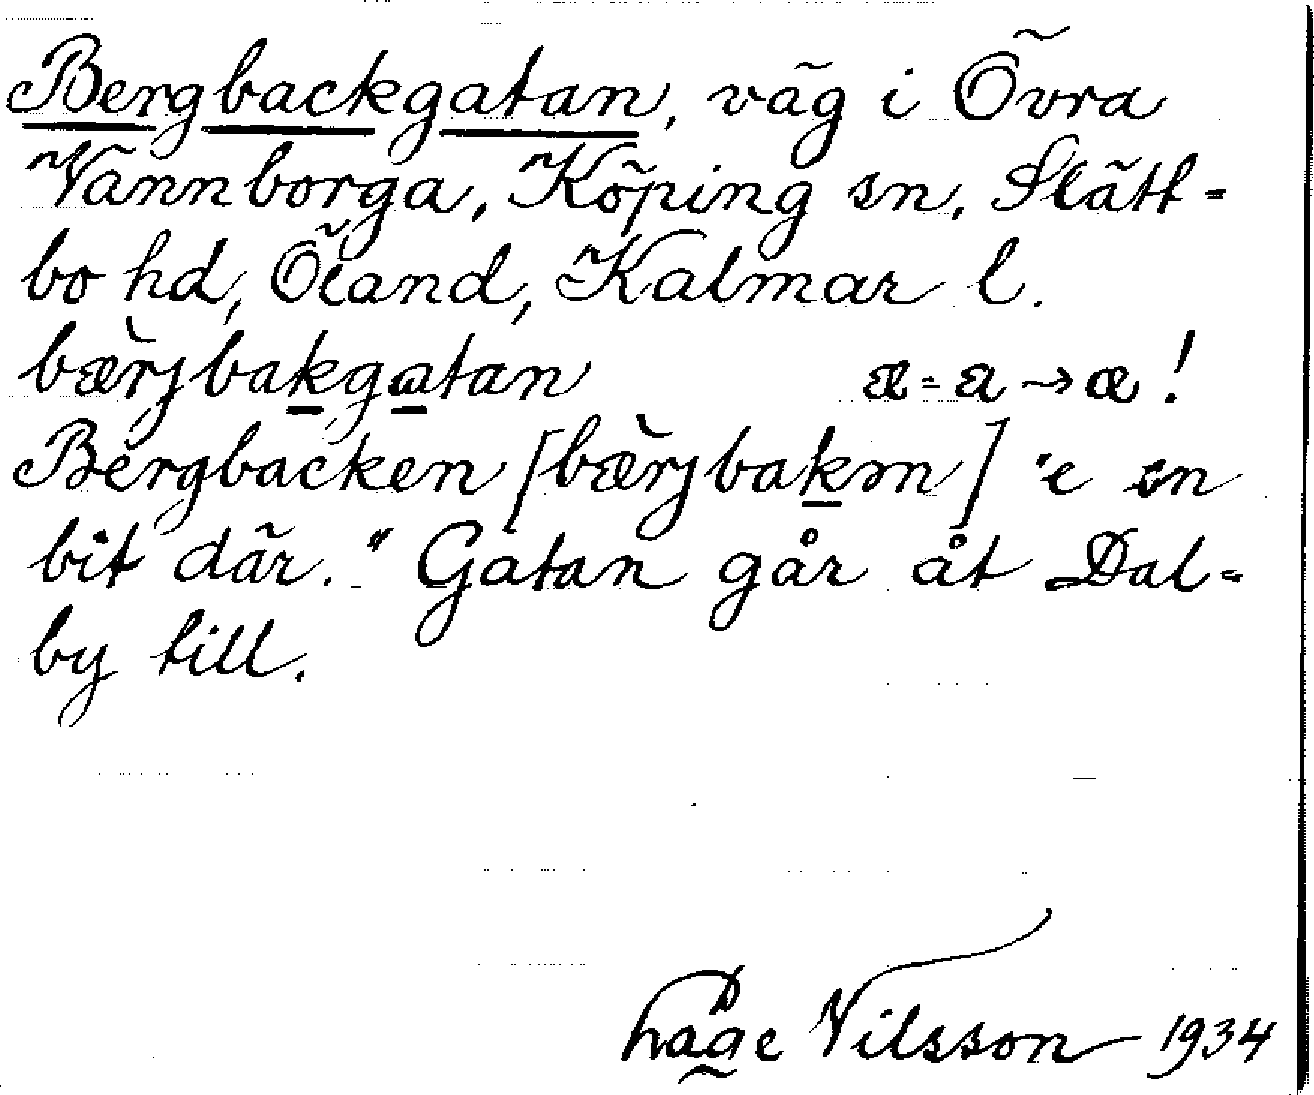 Bergbackgatan, väg i Övra
Vännborga, Köping sn, Slätt=
bo hd, Öland, Kalmar l.
bæ̀rjbakgatan æ = a → œ!
Bergbacken [bæ̀rjbakən] "e en
bit där." Gatan går åt Dal=
by till.
Låge Nilsson 1934